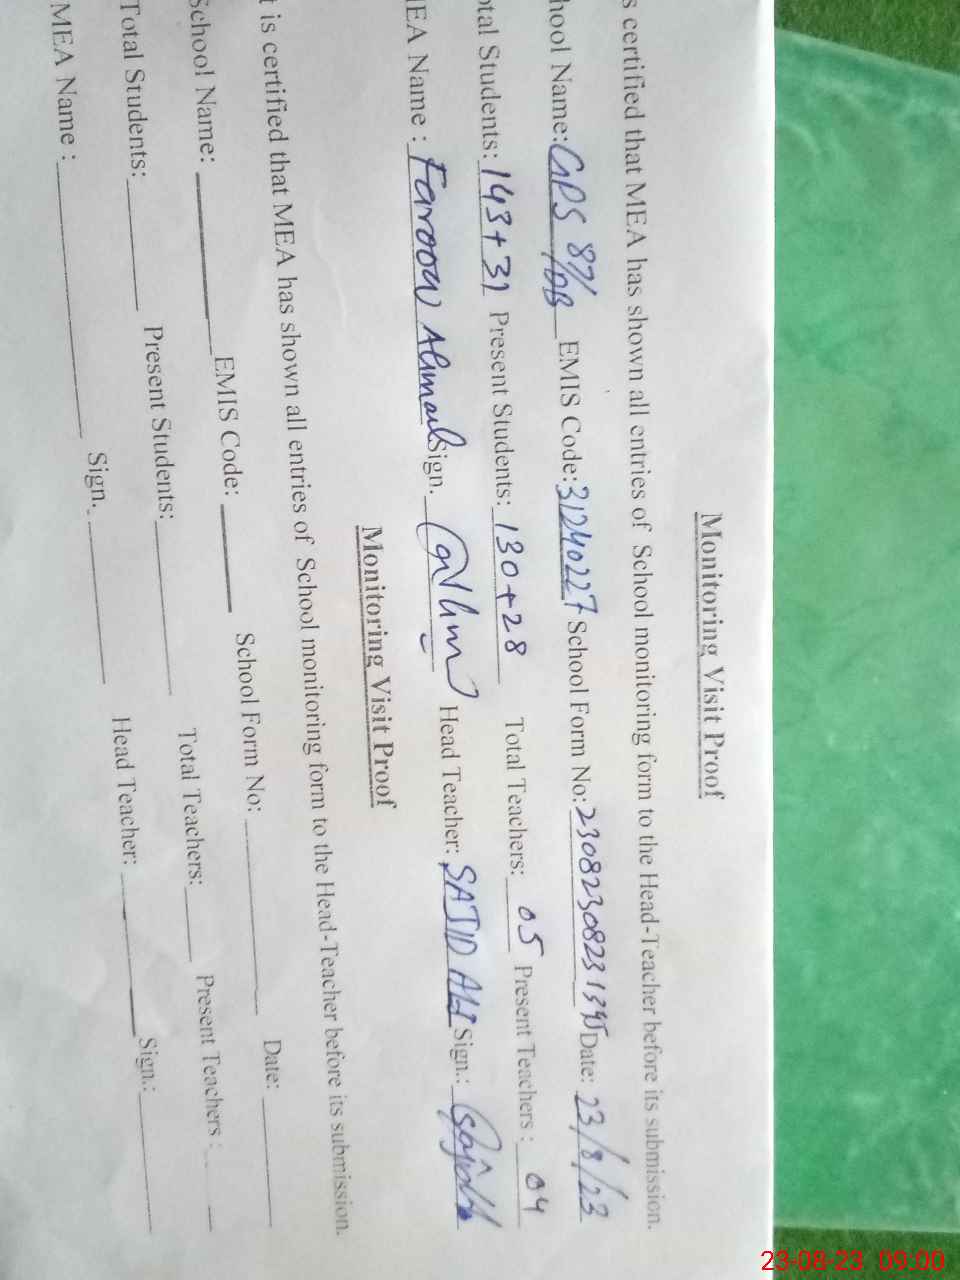 Monitoring Visit Proof
s certified that MEA has shown all entries of School monitoring form to the Head-Teacher before its submission.
hool Name: GPS 87/DB EMIS Code: 31240227 School Form No: 230823082313 Date: 23/8/23
otal Students: 143+31 Present Students: 130+28 Total Teachers: 05 Present Teachers: 04
EA Name: Farooq Ahmad Sign. Head Teacher: SAJID ALI Sign.:
Monitoring Visit Proof
t is certified that MEA has shown all entries of School monitoring form to the Head-Teacher before its submission.
School Name: EMIS Code: School Form No: Date:
Total Students: Present Students: Total Teachers: Present Teachers:
MEA Name: Sign. Head Teacher: Sign.:
23-08-23 09:00